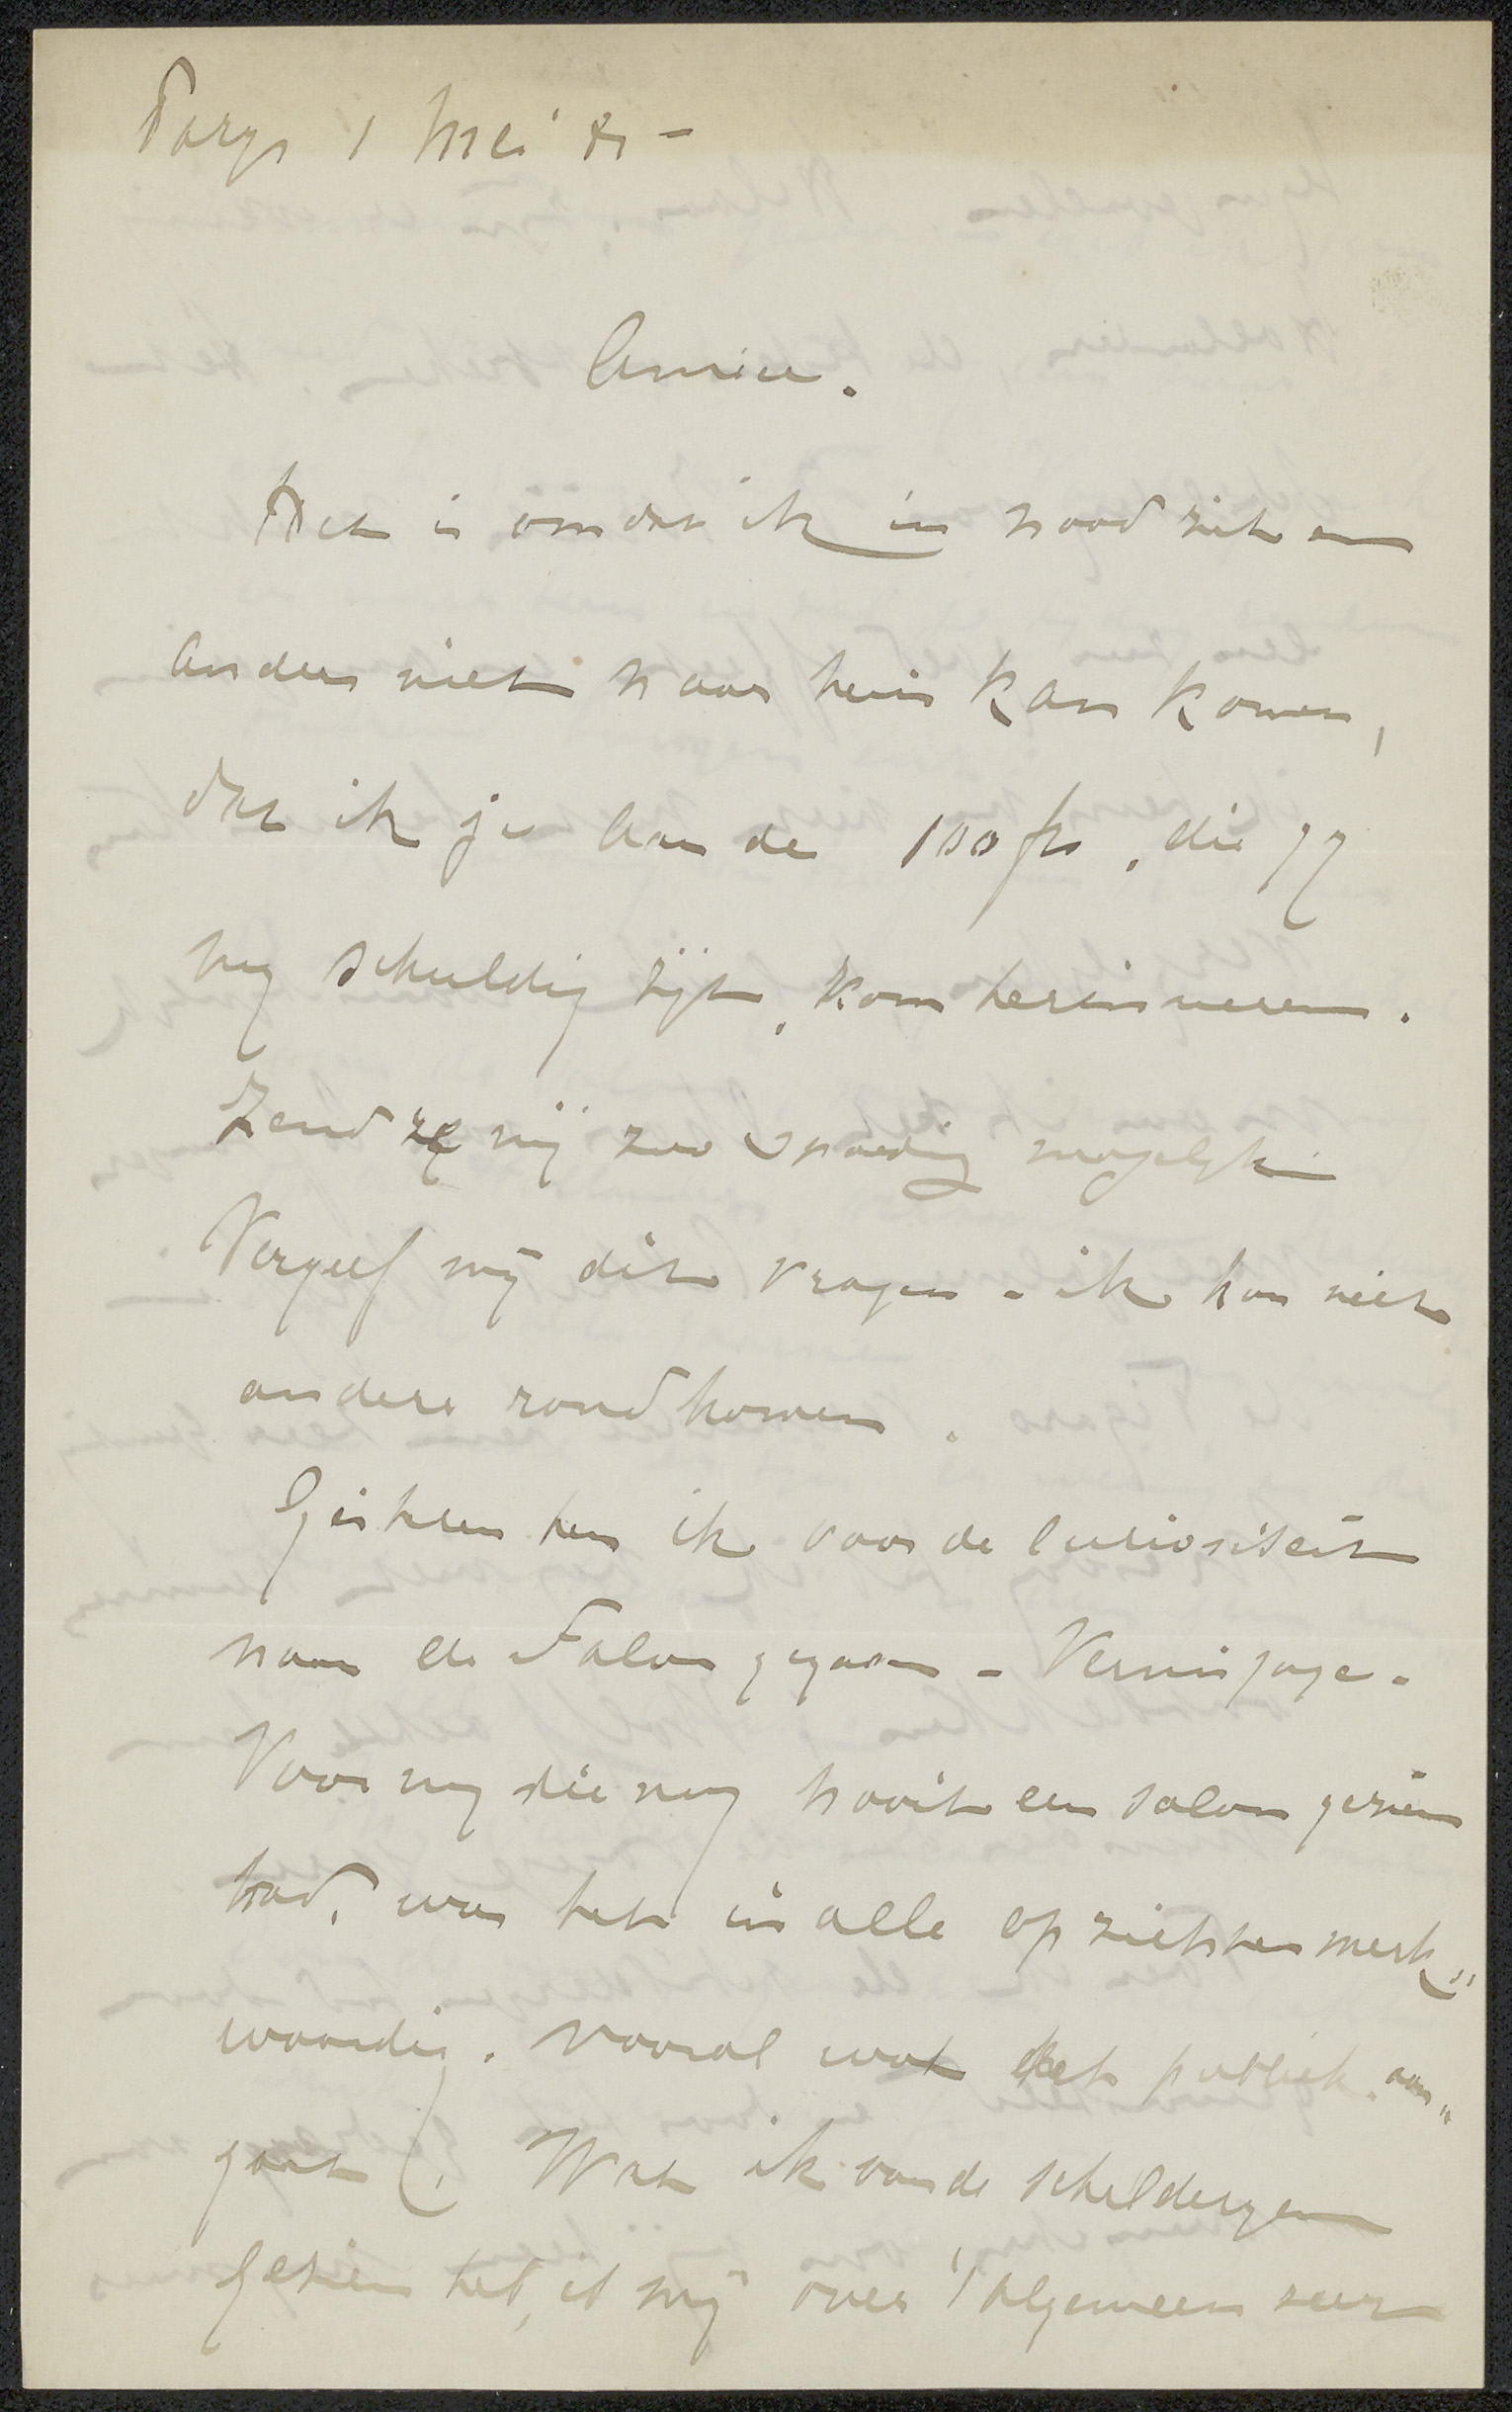 Parys 1 Mei
Amice.
Het is omdat ik in nood zit en
anders niet naar huis kan komen,
dat ik je aan de 100 frs, die jij
mij schuldig zijt, kom herinneren.
Zend ze mij zoo spoedig mogelyk
Vergeef mij dit vragen - ik kan niet
anders rondkomen.
Gisteren ben ik voor de curiositeit
naar de Salon gegaan - Vernisage.
Voor my die nog nooit een salon gezien
had, was het in alle opzichten merk„
waardig. vooral wat het publiek aan„
gaat. Wat ik van de schilderyen
gezien heb, is mij over 't algemeen zeer